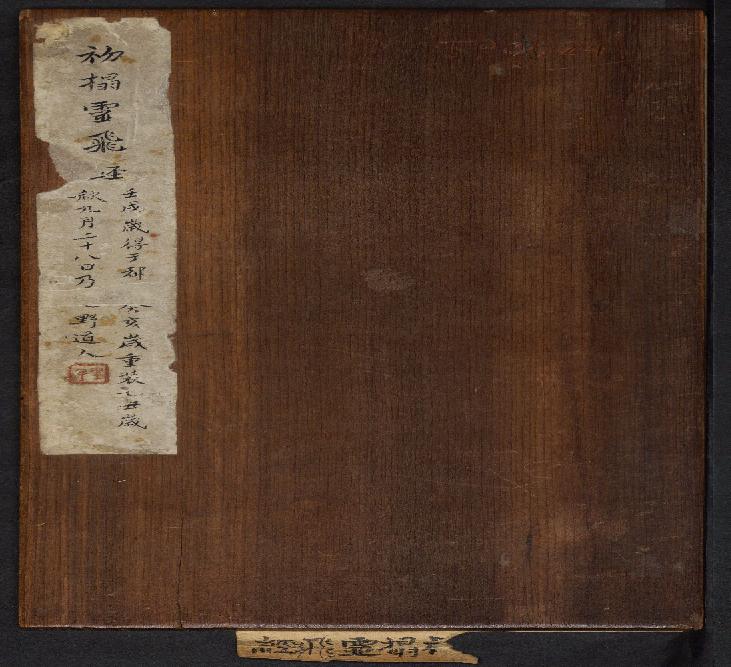 初搨靈飛巠
壬戌歲得于都 癸亥歲重裝乙丑歲
秋九月二十八日乃 一野道人
初搨靈飛經